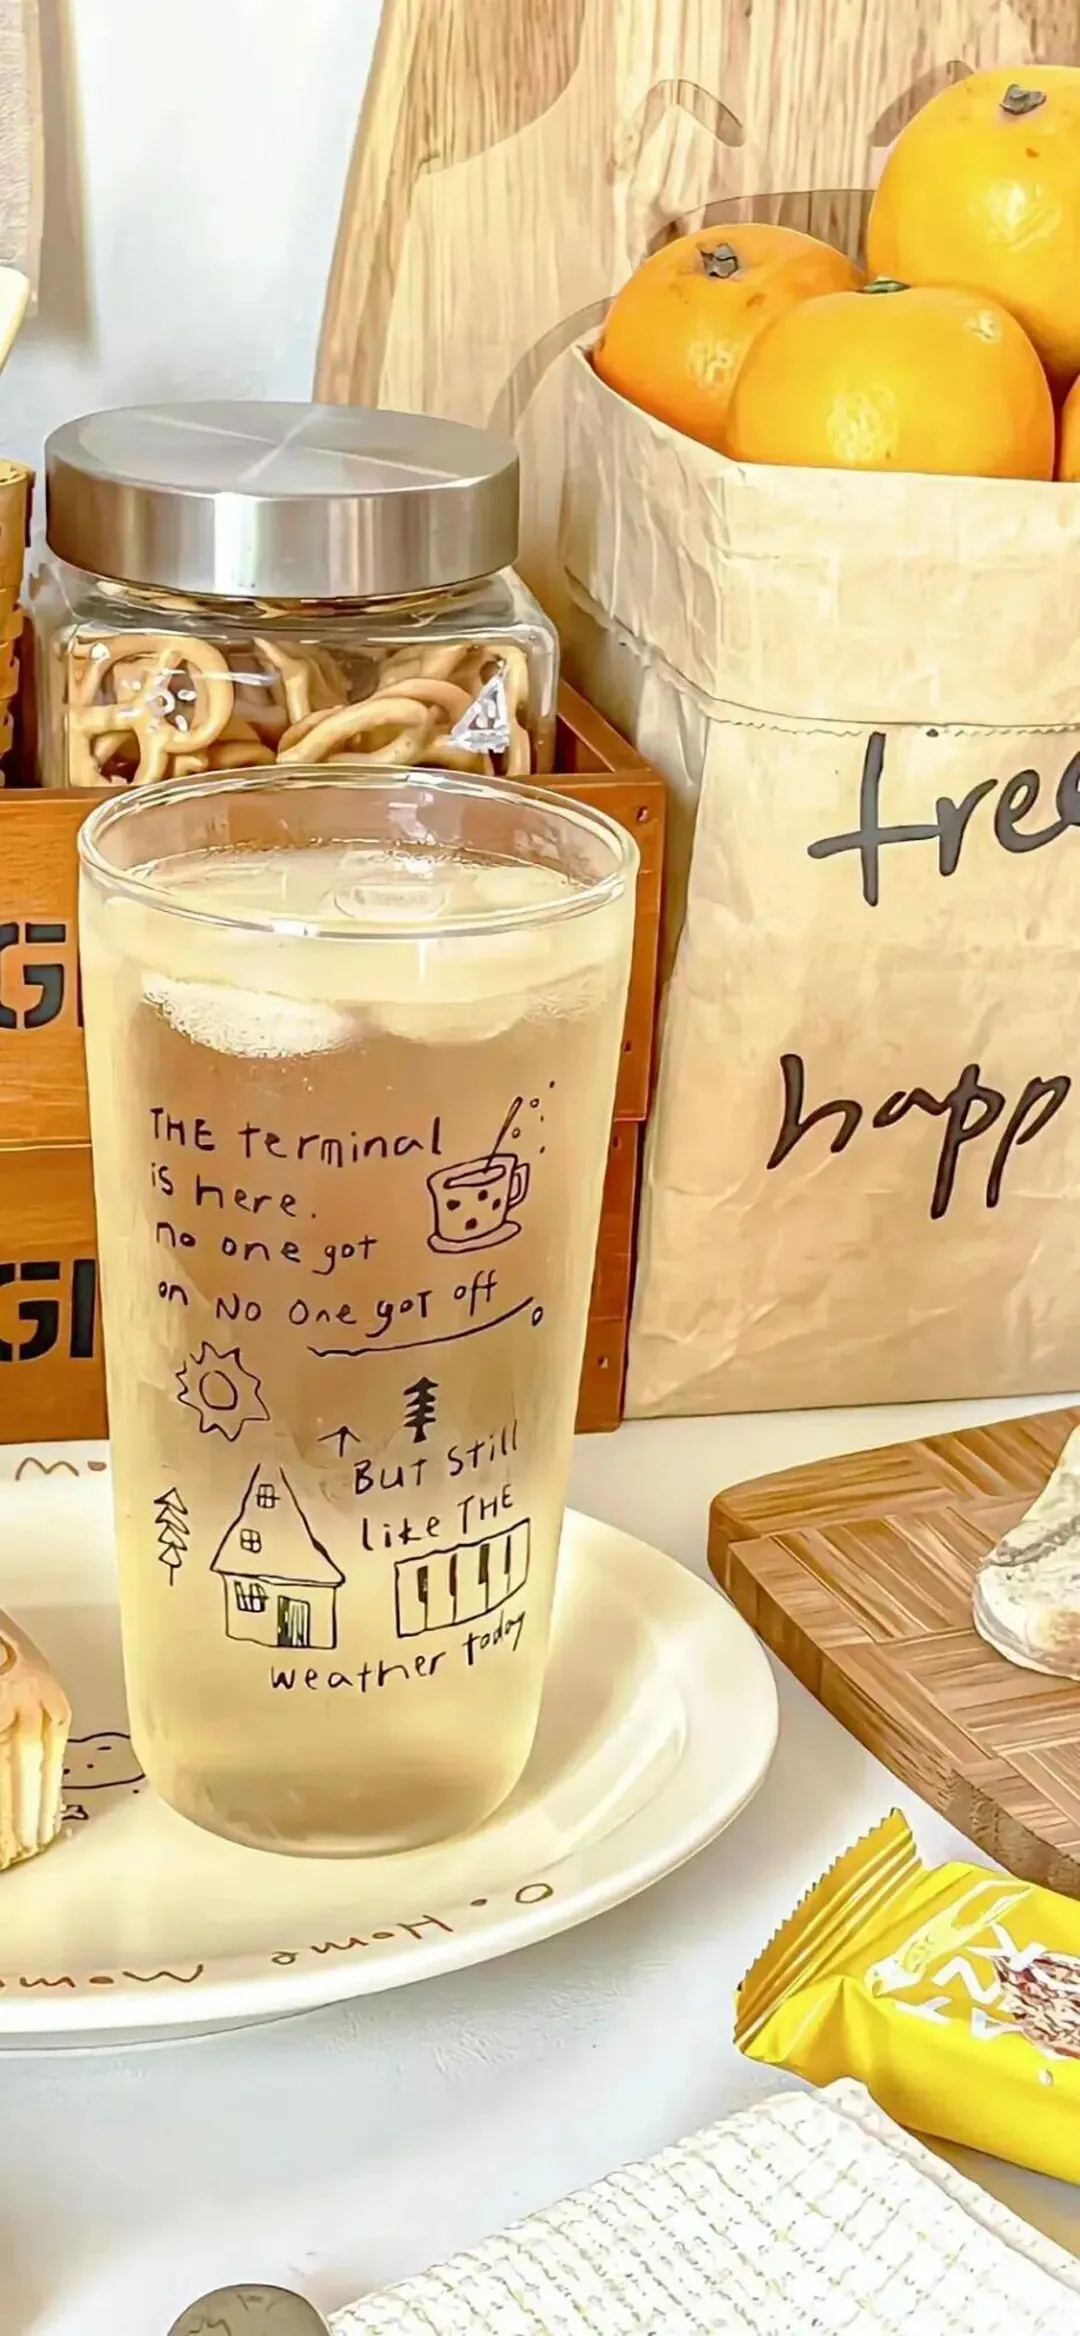 free
happ
GI
GI
THE terminal
is here.
no one got
on No One got off
But still
like THE
weather today
Home